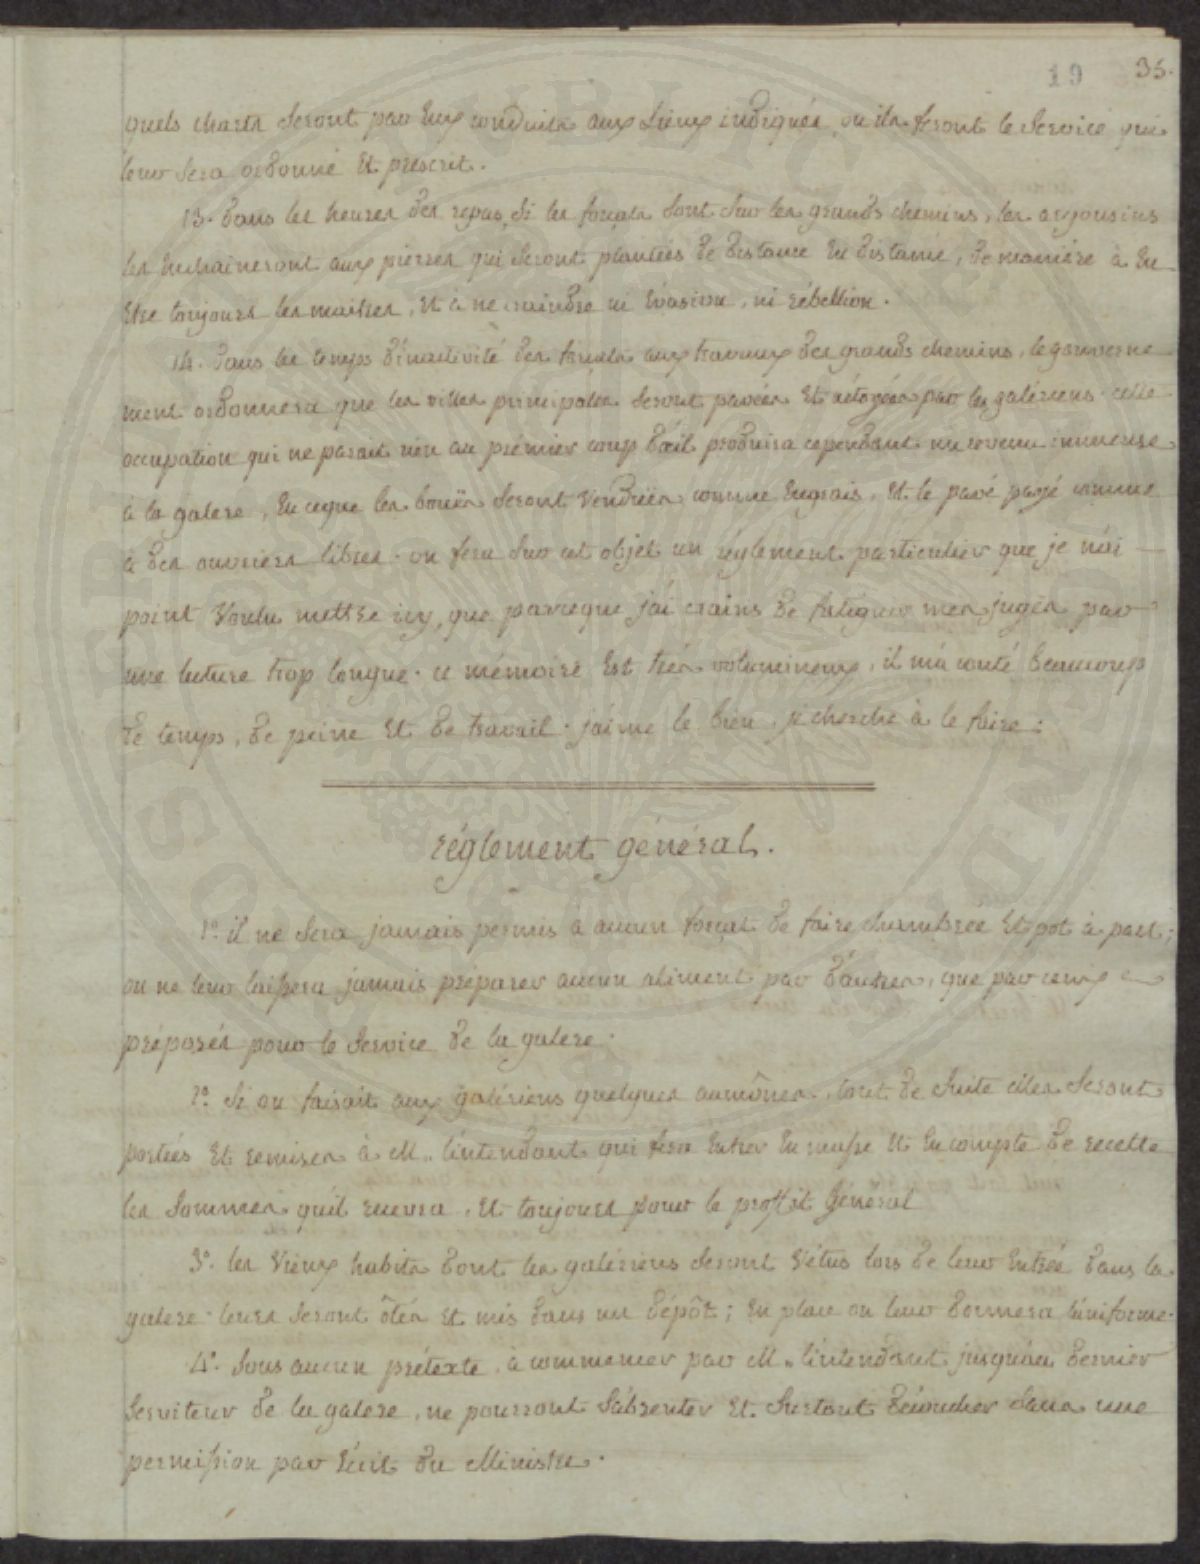 19 35.
quels chars seront par eux conduits aux lieux indiqués, ou ils feront le service qui
leur sera ordonné et prescrit.
13. dans les heures des repas, si les forçats sont sur les grands chemins, les argousins
les enchaineront aux pierres qui seront plantées de distance en distance, de maniére à en
etre toujours les maitres, et à ne craindre ni évasion, ni rébellion.
14. dans les temps d'inactivité des forçats aux travaux des grands chemins, le gouverne
ment ordonnera que les villes principales seront pavées et nétoyées par les galériens. cette
occupation qui ne parait rien au prémier coup d'œil produira cependant un revenu immense
à la galere, en ceque les bouës seront vendües comme engrais, et le pavé payé comme
à des ouvriers libres. on fera sur cet objet un réglement particulier que je n'ai
point voulu mettre icy, que parceque j'ai crains de fatiguer mes juges par
une lecture trop longue. ce mémoire est trés volumineux, il m'a couté beaucoup
de temps, de peine et de travail. j'aime le bien, je cherche à le faire:
réglement général.
1º. il ne sera jamais permis à aucun forçat de faire chambrée et pot à part;
on ne leur laissera jamais préparer aucun aliment par d'autres, que par ceux
préposés pour le service de la galere.
2º. si on faisait aux galériens quelques aumônes, tout de suite elles seront
portées et remises à M. l'intendant qui fera entrer en masse et en compte de recette
les sommes qu'il recevra, et toujours pour le proffit général
3º. les vieux habits dont les galériens seront vétus lors de leur entrée dans la
galere leurs seront ôtés et mis dans un dépôt; en place on leur donnera l'uniforme.
4º. sous aucun prétexte, à commencer par M. l'intendant jusqu'au dernier
serviteur de la galere, ne pourront s'absenter et surtout découcher sans une
permission par écrit du Ministre.